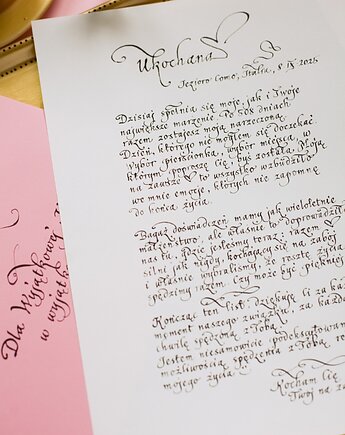 Ukochana
Jezioro Como, Italia, 8 IX 2025
Dzisiaj spełnia się moje, jak i Twoje
największe marzenie. Po 508 dniach
razem zostajesz moją narzeczoną.
Dzień, którego nie mogłem się doczekać
wybór pierścionka, wybór miejsca, w
którym poproszę Cię byś została Moją
na zawsze to wszystko wzbudziło
we mnie emocje, których nie zapomnę
do końca życia.
Bagaż doświadczeń mamy jak wieloletnie
małżeństwo, ale właśnie to doprowadziło
nas tu, gdzie jesteśmy teraz: razem
silni jak nigdy, kochający się na zabój
i właśnie wybraliśmy, że resztę życia
spędzimy razem. Czy może być piękniej
Kończąc ten list, dziękuję Ci za każdy
moment naszego związku, za każdą
chwilę spędzoną z Tobą.
Jestem niesamowicie podekscytowany
możliwością spędzenia z Tobą
mojego życia
Kocham Cię
Twój na
Dla Wyjątkowej
w wyjątk